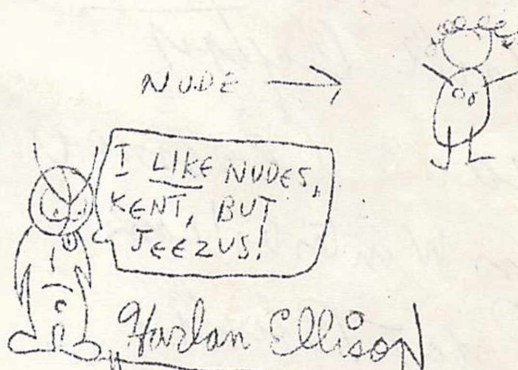 NUDE
I LIKE NUDES,
KENT, BUT
JEEZUS!
Harlan Ellison